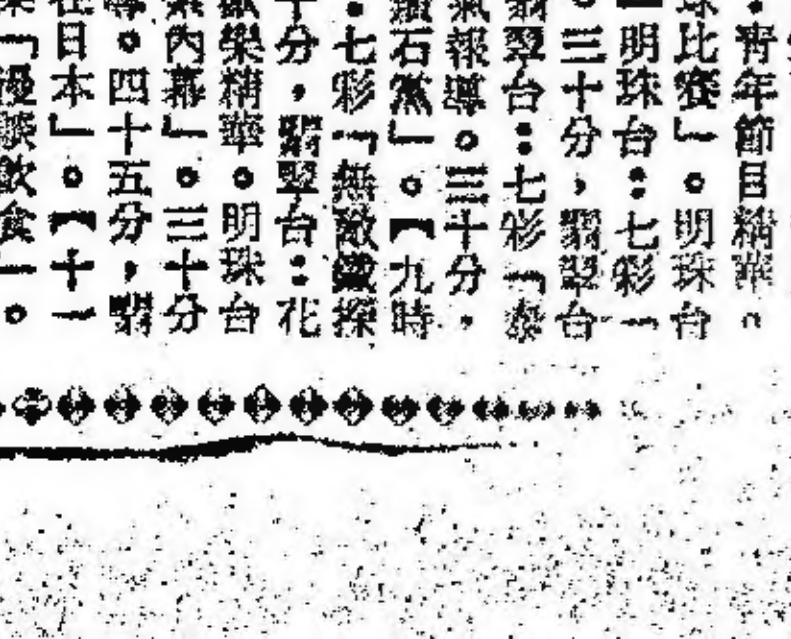 ：青年節目精華。
球比賽」。明珠台
「明珠台：七彩「
。三十分，翡翠台
翡翠台：七彩「泰
氣報導。三十分，
鑽石黨」。【九時
：七彩「無敵鐵探
十分，翡翠台：花
歡樂精華。明珠台
案內幕」。三十分
導。四十五分，翡
在日本」。【十一
「漫談飲食」。